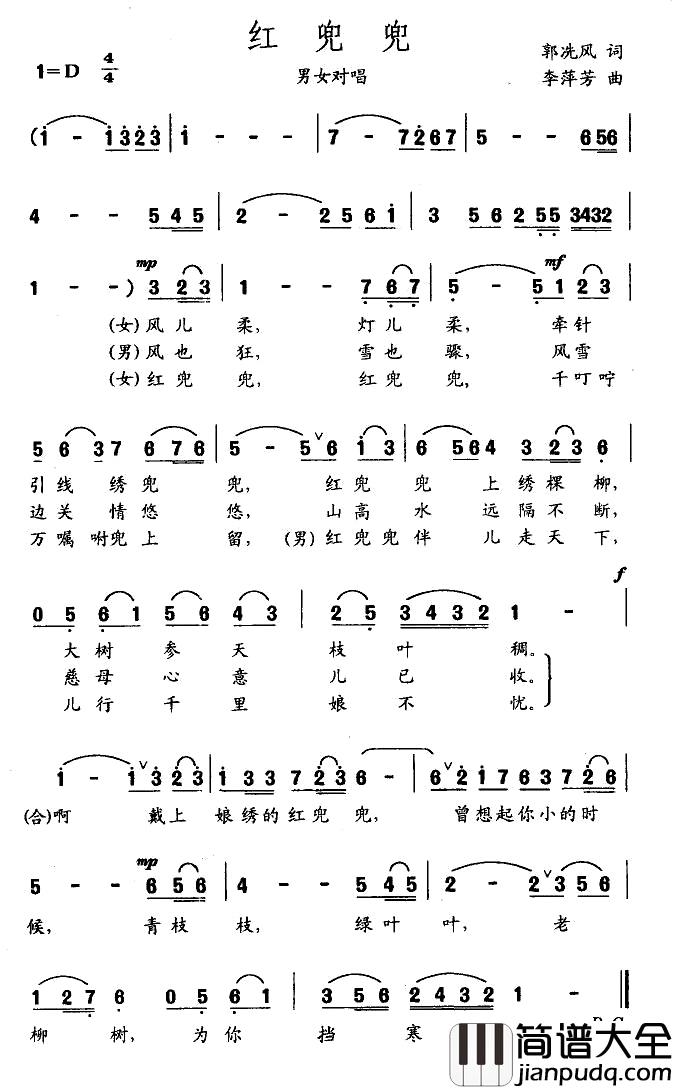 红 兜 兜
1=D 4/4 男女对唱
郭冼风 词
李萍芳 曲
(i - i3 23 | i - - - | 7 - 7267 | 5 - - 656 |
4 - - 5 45 | 2 - 25 6i | 3 56 255 3432 |
mp mf
1 - - ) 3 23 | 1 - - 7 67 | 5 - 51 23 |
(女)风儿 柔, 灯儿 柔, 牵针
(男)风也 狂, 雪也 骤, 风雪
(女)红兜 兜, 红兜 兜, 千叮咛
5 6 37 6 76 | 5 - 5 ∨6 i3 | 6 56 4 3 23 6 |
引线 绣兜 兜, 红兜 兜 上绣棵柳,
边关 情悠 悠, 山高 水 远隔不断,
万嘱咐兜上 留, (男)红兜兜伴 儿走天下,
f
05 61 56 43 | 25 3432 1 - |
大树 参天 枝叶 稠。
慈母 心意 儿已 收。
儿行 千里 娘不 忧。
i - i ∨3 23 | i 33 7 23 6 - | 6 ∨2 i7 63 7 26 |
(合)啊 戴上 娘绣的红兜 兜, 曾想起你小的时
mp
5 - - 6 56 | 4 - - 5 45 | 2 - 2 ∨3 56 |
候, 青枝 枝, 绿叶 叶, 老
1 27 6 05 61 | 35 6 2432 1 - ‖
柳 树, 为你 挡 寒
D.C.
简谱大全
jianpudq.com